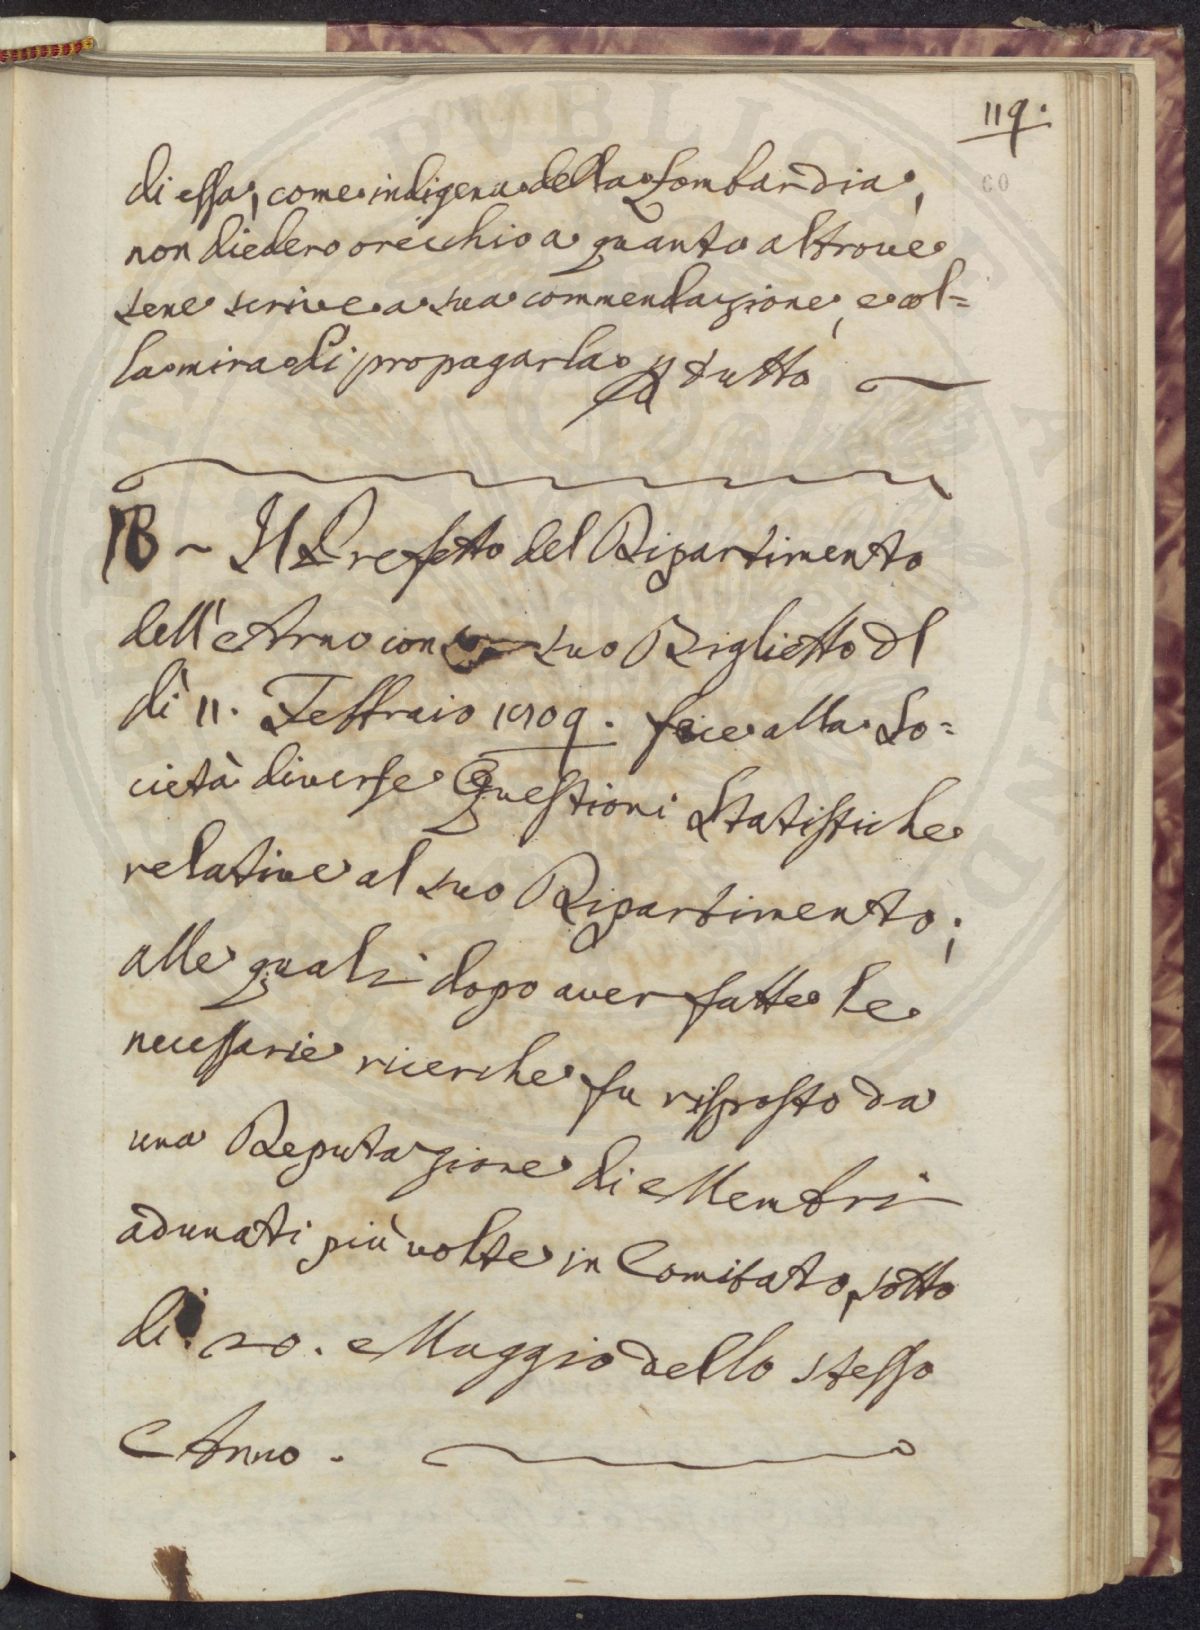 119.
60
di essa, come indigena della Lombardia,
non diedero orecchio a quanto altrove
sene scrive a sua commendazione, e col=
la mira di propagarla p tutto
18 ~ Il Prefetto del Dipartimento
dell'Arno con suo Biglietto dl
dì 11. Febbraio 1809. fece alla So=
cietà diverse Questioni Statistiche
relative al suo Dipartimento;
alle quali dopo aver fatte le
necessarie ricerche fu risposto da
una Deputazione di Membri
adunati più volte in Comitato, sotto
dì 20. Maggio dello stesso
Anno.